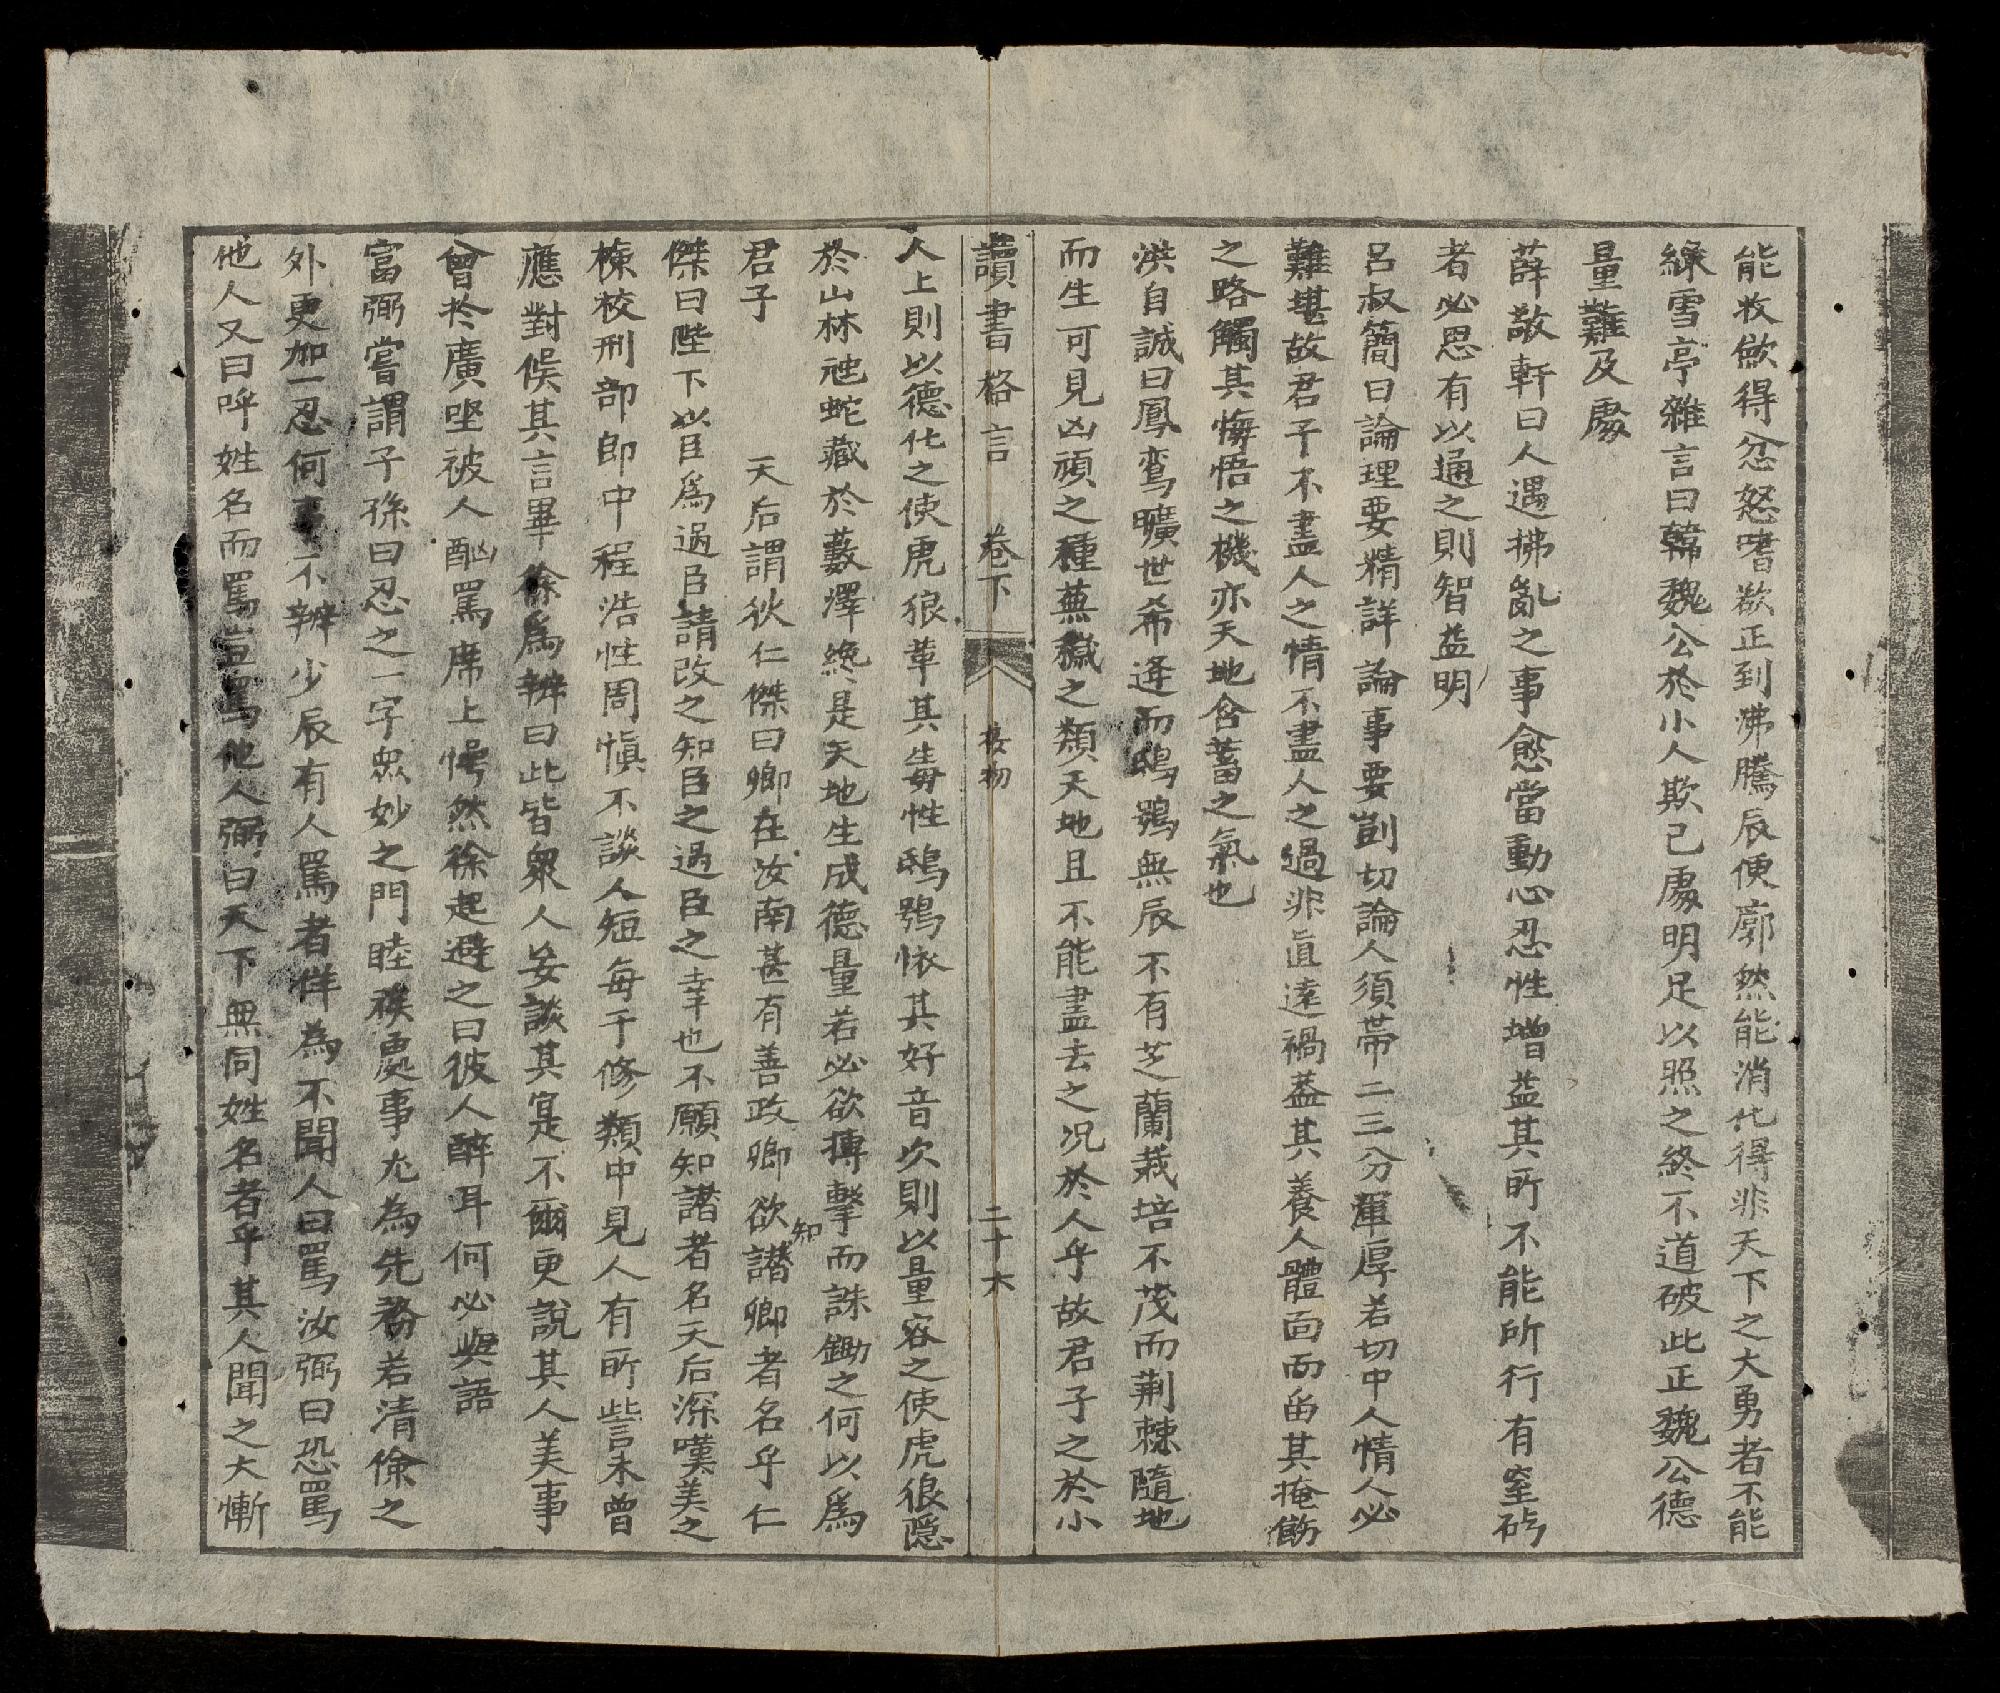 能收斂得忿怒嗜欲正到沸騰辰便廓然能消化得非天下之大勇者不能
綠雪亭雜言曰韓魏公於小人欺己處明足以照之終不道破此正魏公德
量難及處
薛敬軒曰人遇拂亂之事愈當動心忍性增益其所不能所行有窒碍
者必思有以通之則智益明
呂叔簡曰論理要精詳論事要剴切論人須帶二三分渾厚若切中人情人必
難堪故君子不盡人之情不盡人之過非直遠禍葢其養人體面而畱其掩飭
之路觸其悔悟之機亦天地含蓄之氣也
洪自誠曰鳳鸞曠世希逢而鴟鴞無辰不有芝蘭栽培不茂而荆棘隨地
而生可見凶頑之種蕪穢之類天地且不能盡去之况於人乎故君子之於小
讀書格言 卷下 接物 二十六
人上則以德化之使虎狼革其毒性鴟鴞恢其好音次則以量容之使虎狼隠
於山林虵蛇藏於藪澤終是天地生成德量若必欲搏擊而誅鋤之何以爲
君子 天后謂狄仁傑曰卿在汝南甚有善政卿欲知譛卿者名乎仁
傑曰陛下以臣爲過臣請改之知臣之過臣之幸也不願知譛者名天后深嘆美之
棟校刑部郎中程浩性周愼不談人短每于修類中見人有所訾未曾
應對候其言畢徐爲辨曰此皆衆人妄談其寔不爾更說其人美事
曾於廣坐被人酗罵席上愕然徐起避之曰彼人醉耳何必與語
富弼嘗謂子孫曰忍之一字衆妙之門睦族處事尤為先務若清儉之
外更加一忍何事不辨少辰有人罵者佯為不聞人曰罵汝弼曰恐罵
他人又曰呼姓名而罵豈罵他人弼曰天下無同姓名者乎其人聞之大慚